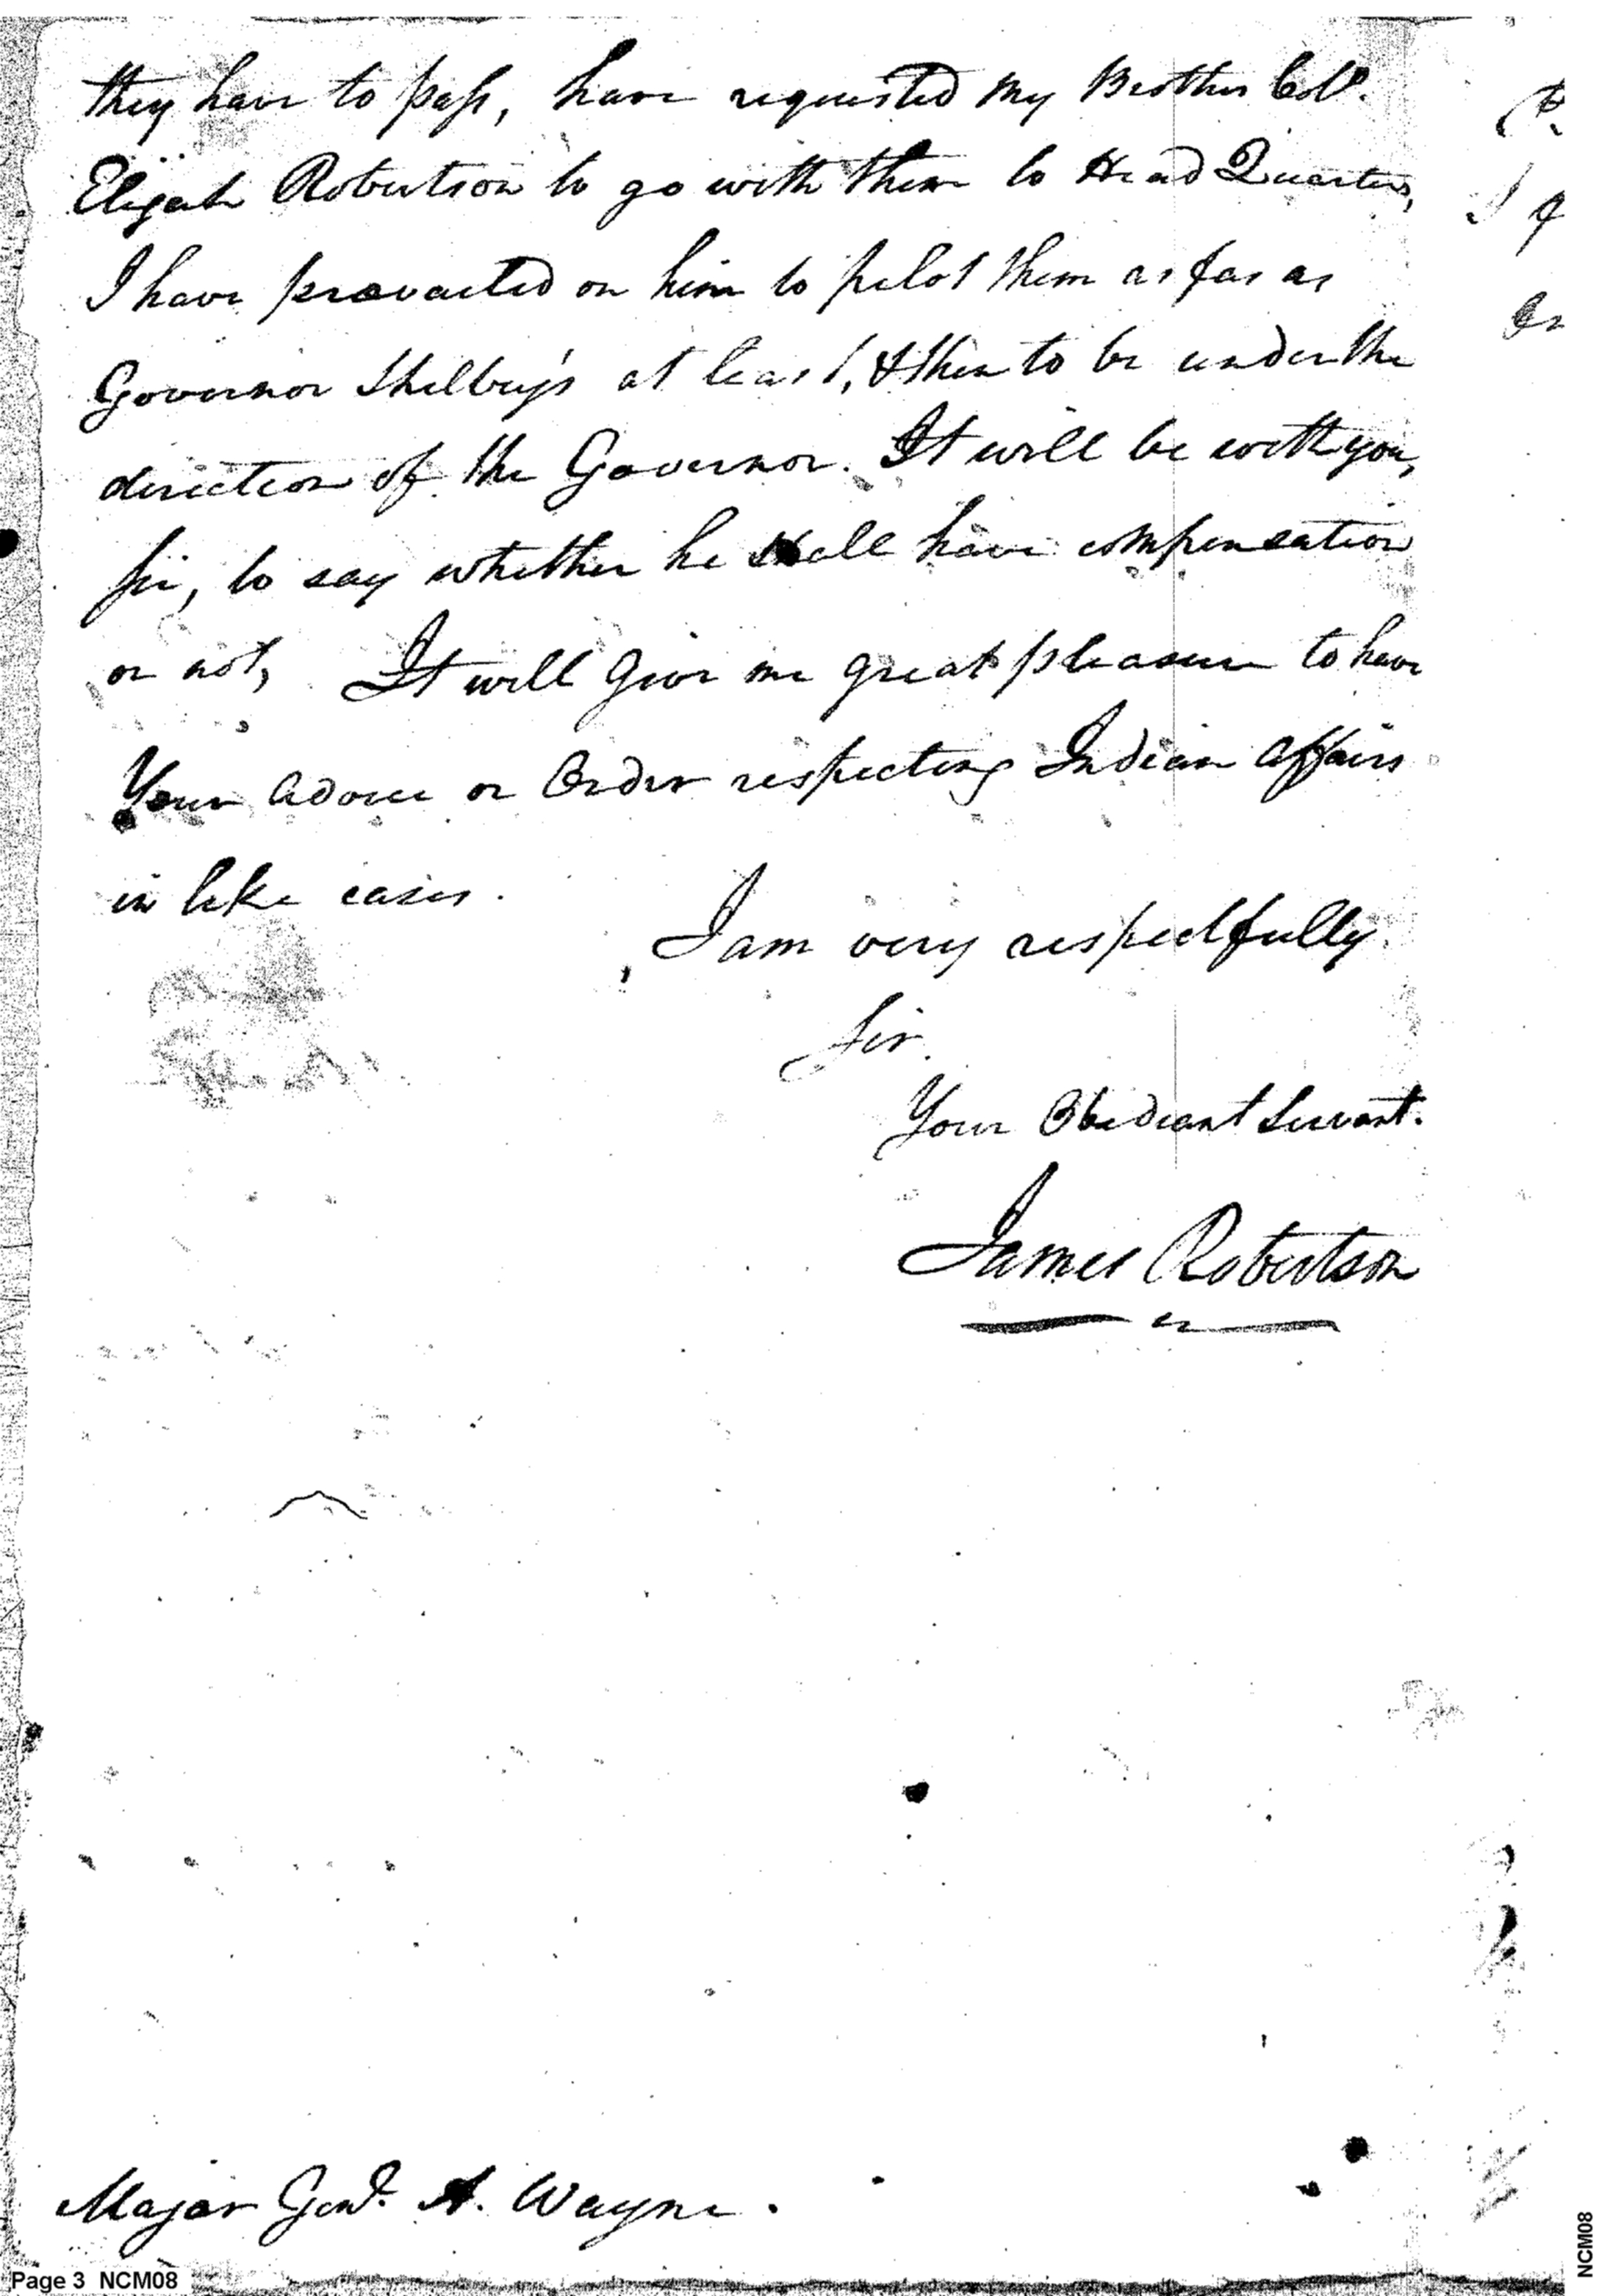 they have to pass, have requested my Brother Colo.
Elijah Robertson to go with them to Head Quarters,
I have prevailed on him to pilot them as far as
Governor Shelbey's at least, & then to be under the
direction of the Governor. It will be with you,
Sir, to say whether he shall have compensation
or not, It will give me great pleasure to have
Your advice or Order respecting Indian affairs
in like cases.
I am very respectfully
Sir.
Your Obedient Servant.
James Robertson
Major Genl. A. Wayne.
Page 3 NCM08
NCM08